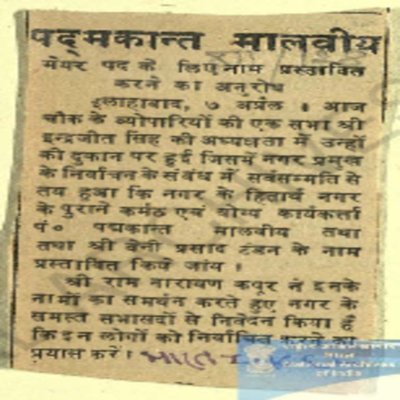 पद्मकान्त मालवीय
मेयर पद के लिए नाम प्रस्तावित
करने का अनुरोध
इलाहाबाद, ७ अप्रैल । आज
चौक के व्योपारियों की एक सभा श्री
इन्द्रजीत सिंह की अध्यक्षता में उन्हों
की दुकान पर हुई जिसमें नगर प्रमुख
के निर्वाचन के संबंध में सर्वसम्मति से
तय हुआ कि नगर के हितार्थ नगर
के पुराने कर्मठ एवं योग्य कार्यकर्त्ता
पं० पद्मकान्त मालवीय तथा
तथा श्री बेनी प्रसाद टंडन के नाम
प्रस्तावित किये जांय ।
श्री राम नारायण कपूर ने इनके
नामों का समर्थन करते हुए नगर के
समस्त सभासदों से निवेदन किया है
कि इन लोगों को निर्वाचित करने का
प्रयास करें। भारत